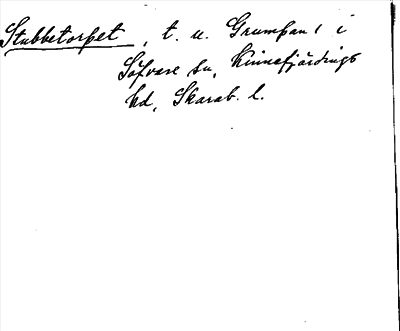 Stubbetorpet, t. u. Grumpan 1 i
Söfvare sn, Kinnefjärdings
hd, Skarab. l.